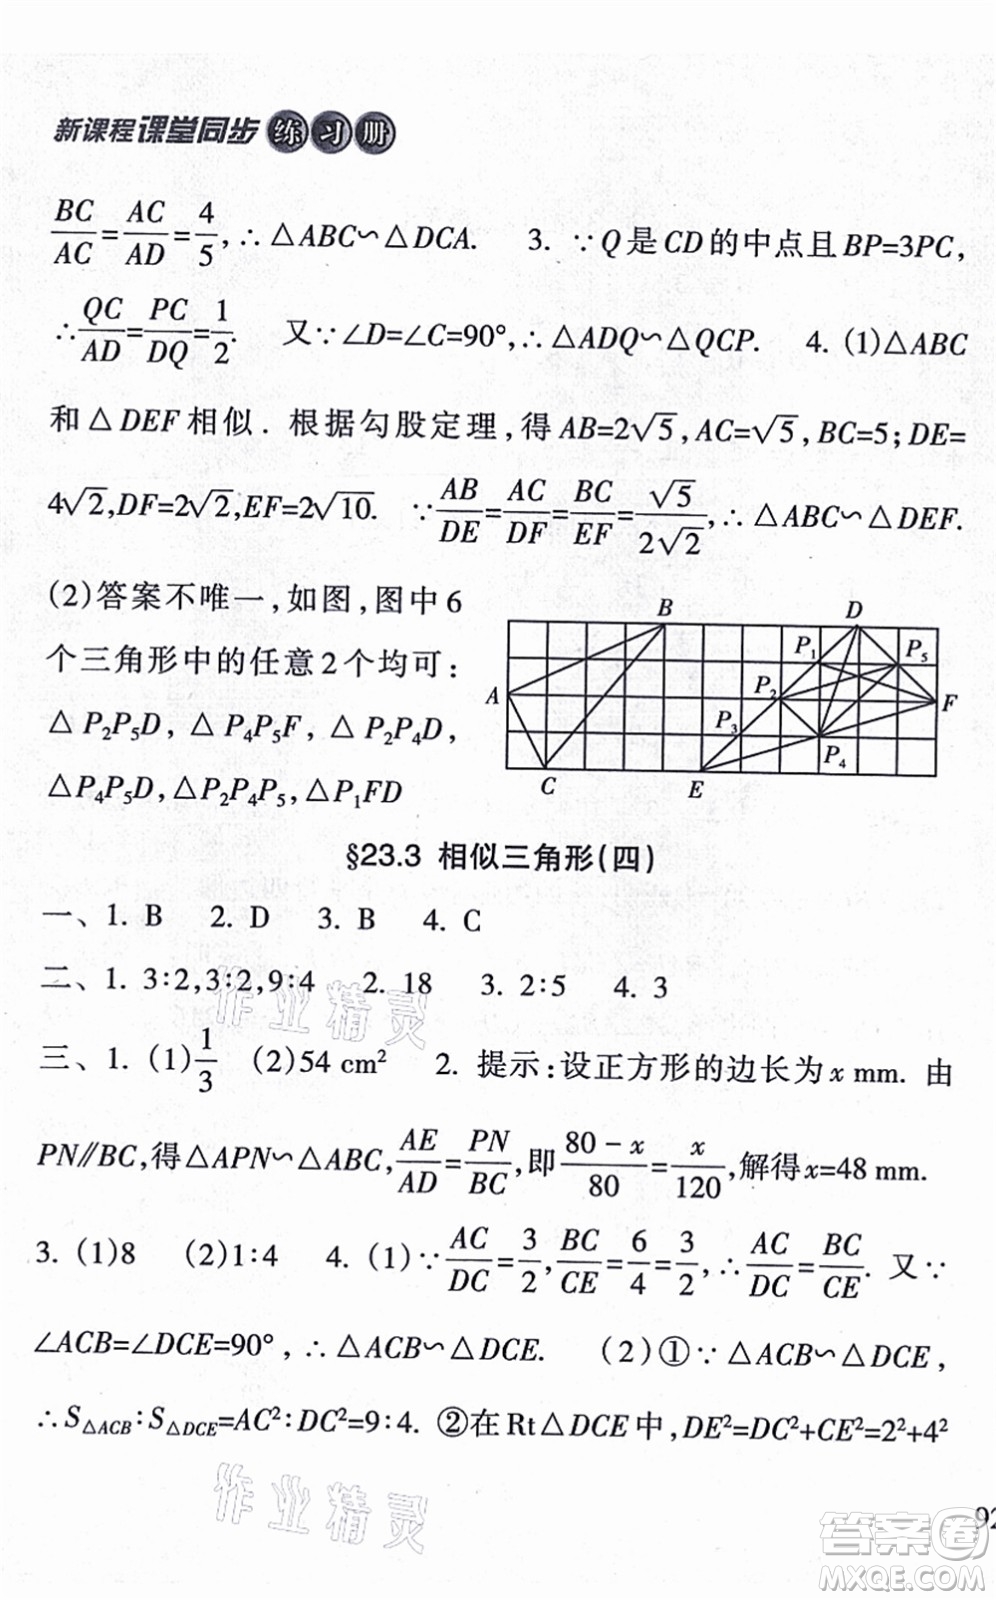 新课程课堂同步练习册
BC/AC=AC/AD=4/5,∴△ABC∽△DCA. 3. ∵Q是CD的中点且BP=3PC,
∴QC/AD=PC/DQ=1/2. 又∵∠D=∠C=90°,∴△ADQ∽△QCP. 4. (1)△ABC
和△DEF相似. 根据勾股定理,得AB=2√5,AC=√5,BC=5;DE=
4√2,DF=2√2,EF=2√10. ∵AB/DE=AC/DF=BC/EF=√5/2√2,∴△ABC∽△DEF.
(2)答案不唯一,如图,图中6
个三角形中的任意2个均可:
△P₂P₅D, △P₄P₅F, △P₂P₄D,
△P₄P₅D,△P₂P₄P₅,△P₁FD
B D
P₁ P₅
A P₂ F
P₃
P₄
C E
§23.3 相似三角形(四)
一、1. B 2. D 3. B 4. C
二、1. 3∶2,3∶2,9∶4 2. 18 3. 2∶5 4. 3
作业精灵
三、1. (1)1/3 (2)54 cm² 2. 提示:设正方形的边长为x mm. 由
PN∥BC,得△APN∽△ABC,AE/AD=PN/BC,即80-x/80=x/120,解得x=48 mm.
3. (1)8 (2)1∶4 4. (1)∵AC/DC=3/2,BC/CE=6/4=3/2,∴AC/DC=BC/CE. 又∵
∠ACB=∠DCE=90°, ∴△ACB∽△DCE. (2)①∵△ACB∽△DCE,
∴S△ACB∶S△DCE=AC²∶DC²=9∶4. ②在Rt△DCE中,DE²=DC²+CE²=2²+4²
作业精灵
92
答案圈
MXQE.COM